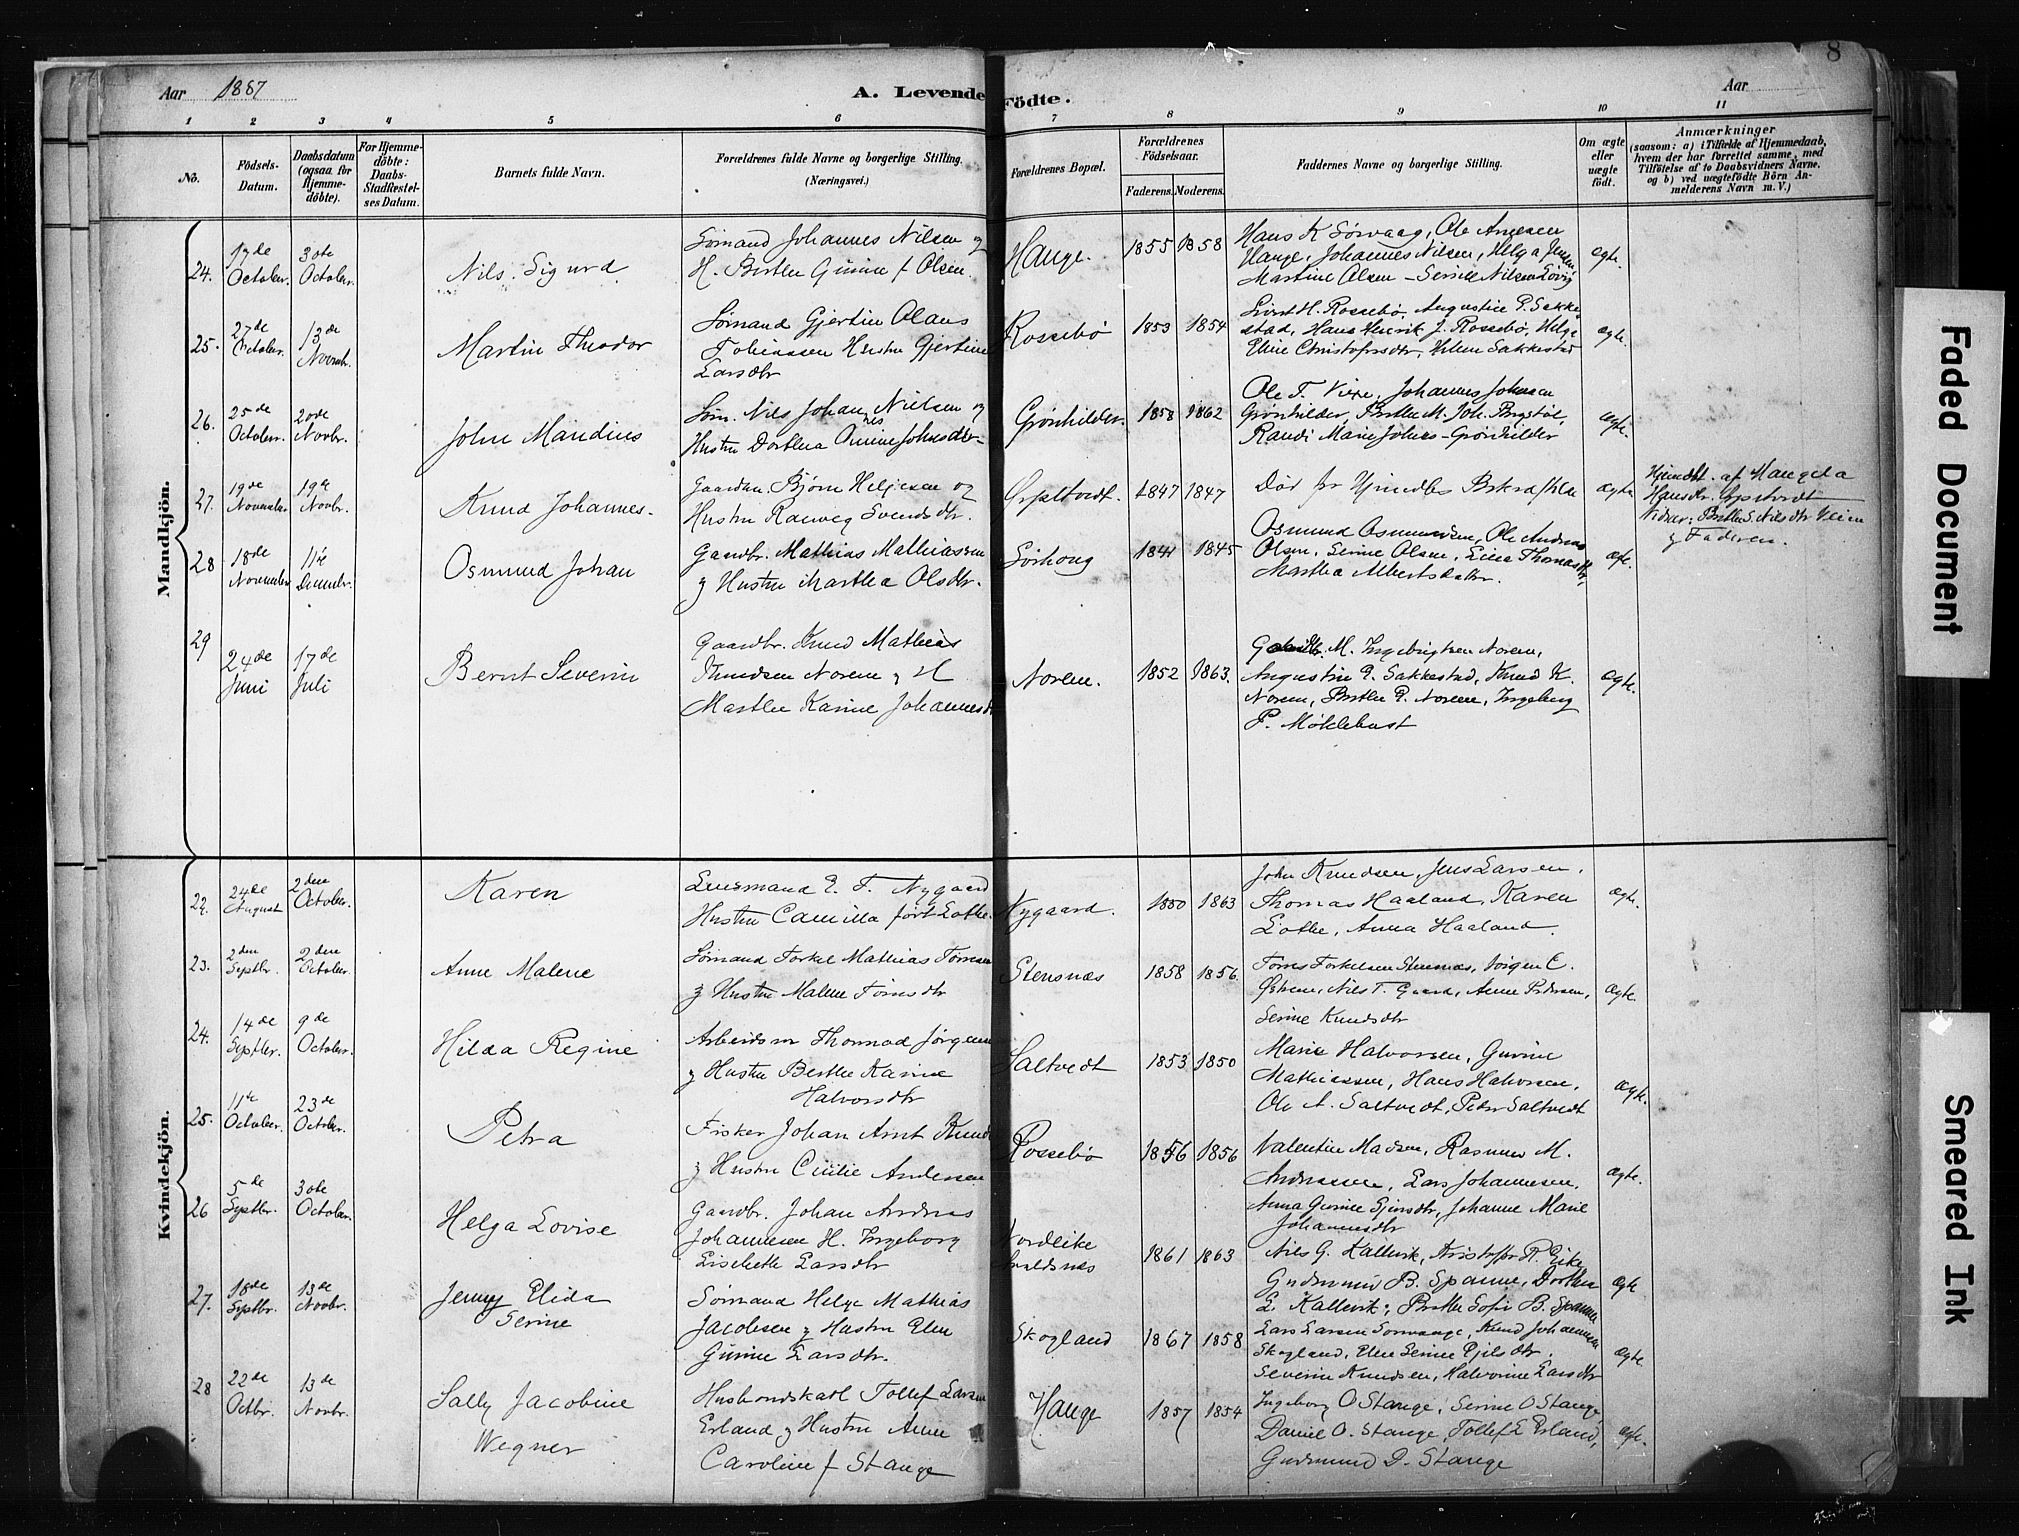 8
Aar 1887
A. Levende Födte.
Aar
1 2 3 4 5 6 7 8 9 10 11
No.
Födsels-Datum.
Daabsdatum (ogsaa for Hjemme-döbte).
For Hjemme-döbte: Daabs-Stadfæstel-ses Datum.
Barnets fulde Navn.
Forældrenes fulde Navne og borgerlige Stilling. (Næringsvei.)
Forældrenes Bopæl.
Forældrenes Födselsaar.
Faderens. Moderens.
Faddernes Navne og borgerlige Stilling.
Om ægte eller uægte födt.
Anmærkninger
(saasom: a) i Tilfælde af Hjemmedaab, hvem der har forrettet samme, med Tilföielse af to Daabsvidners Navne. og b) ved uægtefödte Börn An-melderens Navn m. V.)
Mandkjön.
24. 17de October. 30te October. Nils Sigurd
Sömand Johannes Nilsen og
H. Berthe Gurine f Olsen.
Hauge. 1855 1858
Hans K Sörvaag, Ole
Hauge, Johannes Nilsen, Helga
Martine Olsen - Serine Nilsen
ægte.
25. 27de October. 13de Novemb. Martin Theodor
Sömand Gjertin Olaus
Tobiassen Hustru Gjertine
Larsdtr
Rossebö 1853 1854
Sivert H. Rossebö, Augustin P. Sakke-
stad, Hans Henrik J. Rossebö, Helga
Eline Christofersdtr, Sakkestad
ægte.
26. 25de October. 20de Novbr. John Mandius
Söm. Nils Johannes Nielsen og
Hustru Dorthea
Grönhilder. 1858 1862
Ole T. Johannes Johnsen
Grönhilder, Berthe M. Joh.
Randi Marie Johns- Grönhilder
ægte.
27. 19de November 19de Novbr. Knud Johannes.
Gaardm. Björn Helgesen og
Hustru Ranveg Svendsdtr.
1847 1847
Död för Hjmdbs
ægte
Hjemdbt. af Margrta
Hansdtr.
Vidner: Berthe S. Nilsdtr Veien
og Faderen.
28 18de November 11te Decembr. Osmund Johan
Gaardbr. Mathias Mathiassen
og Hustru Martha Olsdtr.
Sörhoug 1841 1845
Osmund Osmundsen, Ole Andreas
Olsen, Serine Olsen, Lina Thomasdtr,
Martha Albertsdatter.
29 24de Juni 17de Juli Bernt Severin
Gaardbr. Knud Mathias
Knudsen Norem og H
Marthe Karine Johannesd
Norem. 1852 1863.
M. Ingebrigtsen Norem,
Augustin P. Sakkestad, Knud K.
Norem, Berthe P. Norem, Ingeborg
P. Möklebust
ægte.
Kvindekjön.
22. 24de August 2den October. Karen
Lensmand E. F. Nygaard
Hustru Camilla föd Lothe
Nygaard. 1850 1863
John Knudsen, Jens Larsen,
Thomas Haaland, Karen
Lothe, Anna Haaland.
ægte.
23. 2den Septbr. 2den October. Anne Malene
Sömand Torkel Mathias Torresen
og Hustru Malene Törresdtr
Stensnæs 1858 1856
Torres Torkelsen Stensnæs, Jörgen C.
Nils T. Gaard, Anne Pedersen,
Serine Knudsdtr
ægte.
24. 14de Septbr. 9de October. Hilda Regine
Arbeidsm Thormod Jörgensen
og Hustru Berthe Karine
Halvorsdtr
Saltvedt 1853 1850
Marie Halvorsen, Gurine
Mathiassen, Hans Halvorsen,
Ole A. Saltvedt, Peder Saltvedt
ægte.
25. 11te October. 23de October. Petra
Fisker Johan Arnt Knud
og Hustru Cicilie Andersen
Rossebö 1856 1856
Valentin Madsen, Rasmus M.
Andreassen, Lars Johannesen,
Anna Gurine Ejersdtr, Johanne Marie
Johannesdtr
ægte.
26 5de Septbr. 30te October. Helga Lovise
Gaardbr. Johan Andreas
Johannesen H. Ingeborg
Lisebette Larsdtr
Nordlike
1861 1863
Nils G. Kallevik, Kristoffer R. Eike
Gudmund B. Spanne, Dorthea
L. Kallevik, Berthe Sofie B. Spanne
ægte
27. 18de Septbr. 13de Novbr. Jenny Elida
Serine
Sömand Helge Mathias
Jacobsen og Hustru Elen
Gurine Larsdtr.
Skogland 1867 1858
Lars Larsen Sorvaage, Knud Johannesen
Skogland, Elen Serine Ejilsdtr.
Severin Knudsen, Halvorine Larsdtr
ægte.
28 22de Octbr. 13de Novbr. Sally Jacobine
Wegner
Husbondskarl Tollef Larsen
Erland og Hustru Anne
Caroline f Stange
Hauge 1857 1854
Ingeborg O Stange, Serine O Stange,
Daniel O. Stange, Tollef L Erland,
Gudmund D. Stange
ægte.
Faded Document
Smeared Ink